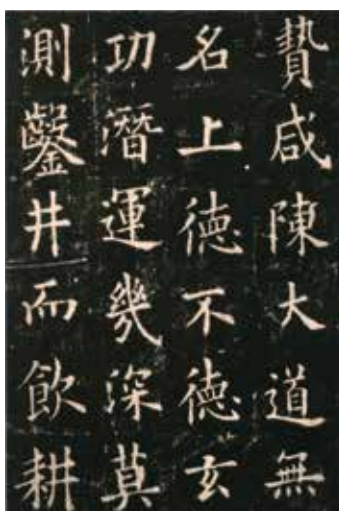 贄咸陳大道無
名上徳不徳玄
功潛運幾深莫
測鑿井而飲耕